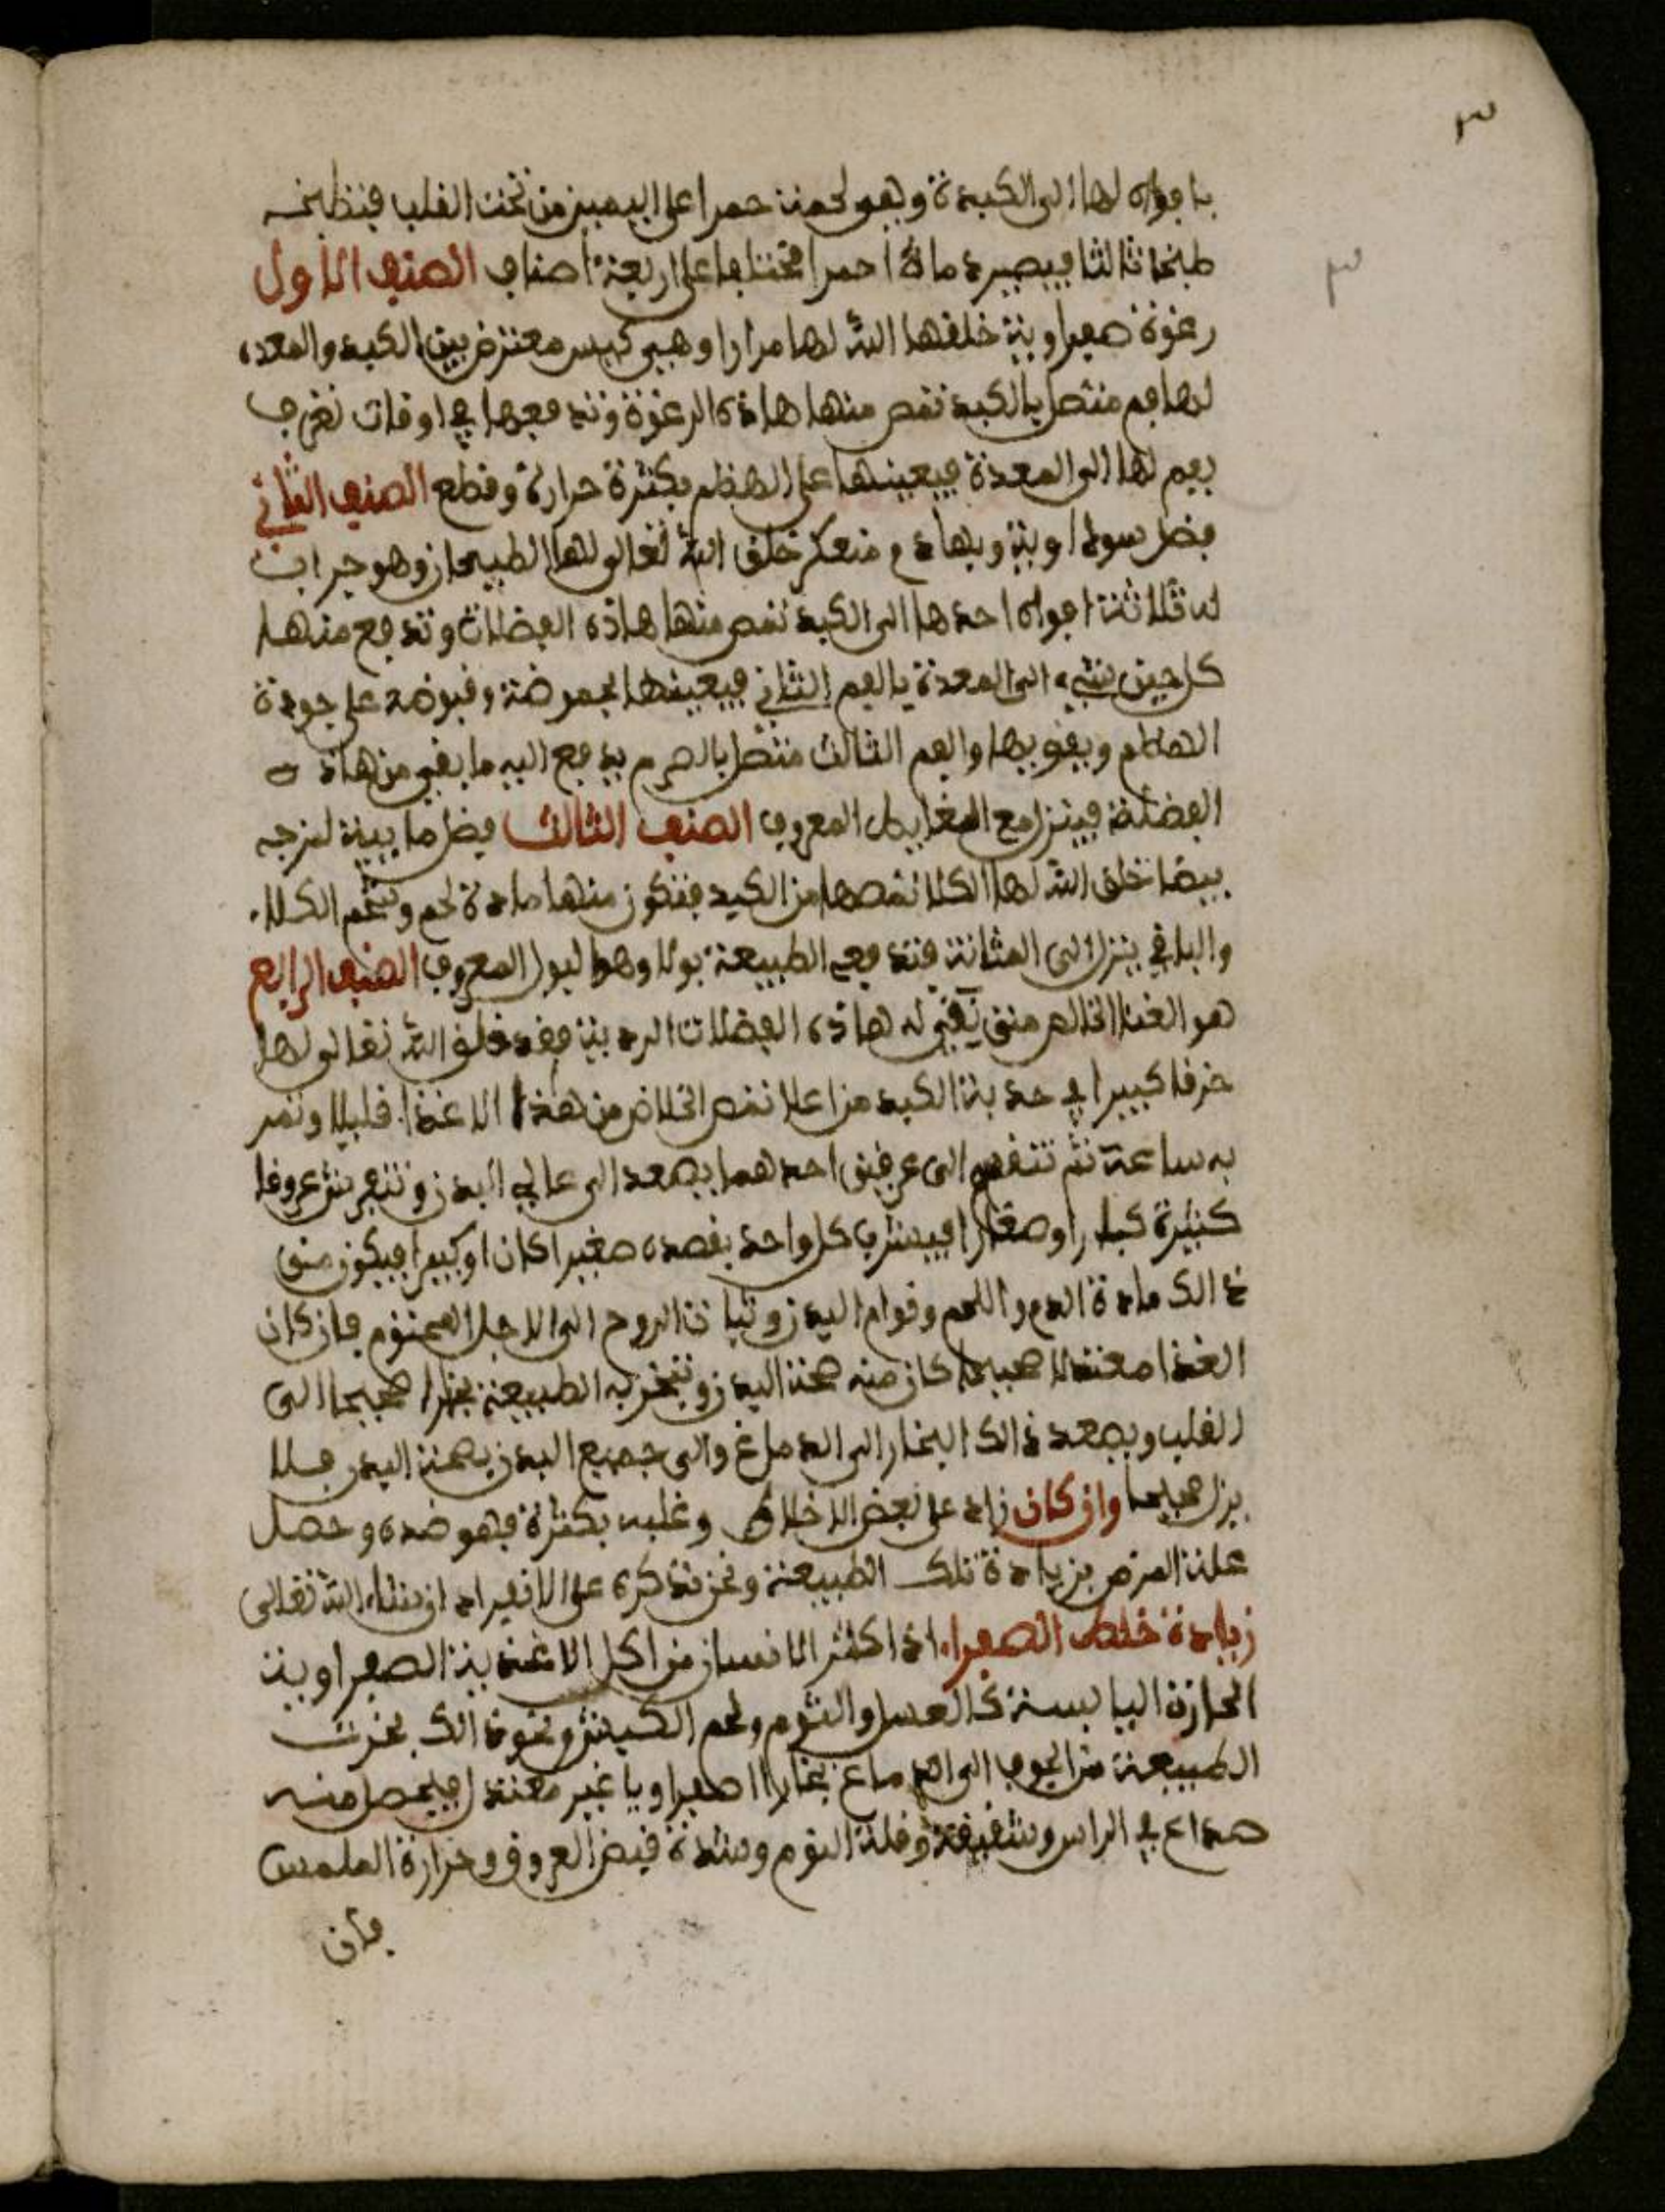 ٣
٣
بافواه لها الى الكبدة وهو لحمة حمرا على اليمين من تحت القلب فتطبخه
طبخا ثالثا فيصيره ماءً احمرا مختلفا على اربعة اصناف الصنف الاول
رغوة صفراوية خلقها الله لها مرارا وهي كيس معترض بين الكبد والمعدة
لها فم متصل بالكبد تمص منها هاذه الرغوة وتدفعها في اوقات
بفم لها الى المعدة فيعينها على الهظم بكثرة حرارة وقطع الصنف الثاني
فضل سوداوية وبها دم متعكر خلق الله تعالى لها الطيحان وهو جراب
له ثلاثة افواه احدها الى الكبد تمص منها هاذه الفضلات وتدفع منها
كل حين شيء الى المعدة بالفم الثاني فيعينها بحموضة وقبوضة على جودة
الهظم ويقويها والفم الثالث متصل بالصرم يدفع اليه ما بقي من هاذه
الفضلة فينزل مع الغايط المعروف الصنف الثالث فضل مايية لزجه
بيضا خلق الله لها الكلا تمصها من الكبد فتكون منها مادة لحم وشحم الكلا
والباقي ينزل الى المثانة فتدفعه الطبيعة بولا وهو البول المعروف الصنف الرابع
هو الغذا الخالص منقى له هاذه الفضلات الردية فقد خلق الله تعالى لها
عرقا كبيرا في حدبة الكبد من اعلا تمص الخلاص من هذا الاغذا قليلا وتمر
به ساعة ثم تنقسم الى عرقين احدهما يصعد الى عالي البدن وتتفرع عروقا
كثيرة كبارا وصغارا فيشرب كل واحد بقصده صغيرا كان او كبيرا فيكون من
ذالك مادة الدم واللحم وقوام البدن وثبات الروح الى الاجل المحتوم فان كان
الغذا معتدلا صحيحا كان منه صحة البدن وتبخر به الطبيعة بخارا صحيحا الى
القلب ويصعد ذالك البخار الى الدماغ والى جميع البدن بصحة البدن فلا
يزل صحيحا وان كان زاد على بعض الاخلاط وغلبه بكثرة فهو ضده وحصل
علة المرض بزيادة تلك الطبيعة ونحن نذكره على الانفراد ان شاء الله تعالى
زيادة خلط الصفراء اذا اكثر الانسان من اكل الاغذية الصفراوية
الحارة اليابسة كالعسل والثوم ولحم الكبش ونحو ذالك بخرت
الطبيعة من الجوف الى الدماغ بخارا صفراويا غير معتدل فيحصل منه
صداع في الراس وشقيقة وقلة النوم وشدة قبض العروق وحرارة الملمس
فان